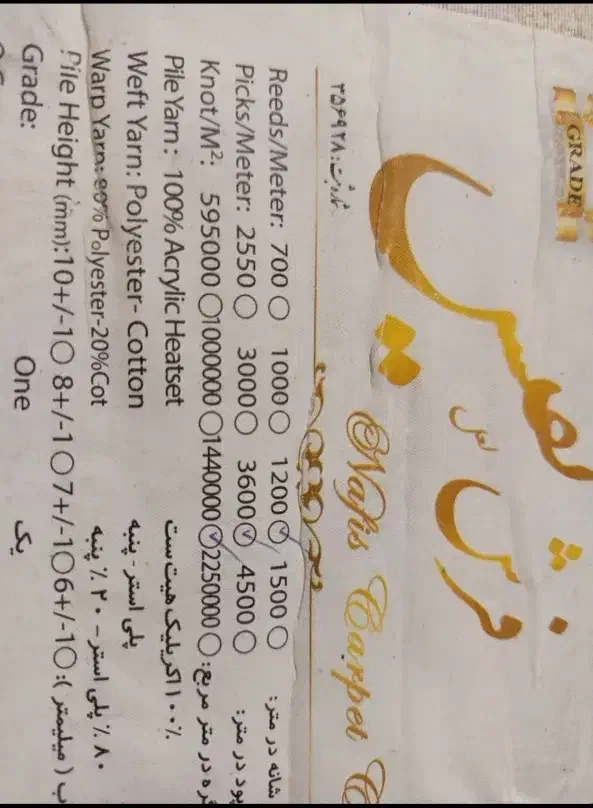 GRADE
نفیس
فرش
Nafis Carpet C
۳۵۶۹۲۸
Reeds/Meter: 700 ○ 1000 ○ 1200 ✓ 1500 ○ شانه در متر:
Picks/Meter: 2550 ○ 3000 ○ 3600 ✓ 4500 ○ پود در متر:
Knot/M²: 595000 ○ 1000000 ○ 1440000 ✓ 2250000 ○ گره در متر مربع:
Pile Yarn: 100% Acrylic Heatset ۱۰۰٪ اکریلیک هیت ست
Weft Yarn: Polyester- Cotton پلی استر - پنبه
Warp Yarn: 80% Polyester-20%Cot ۸۰ ٪ پلی استر - ۲۰ ٪ پنبه
Pile Height (mm):10+/-1○ 8+/-1○ 7+/-1○ 6+/-1○ ب ( میلیمتر ):
Grade: One یک